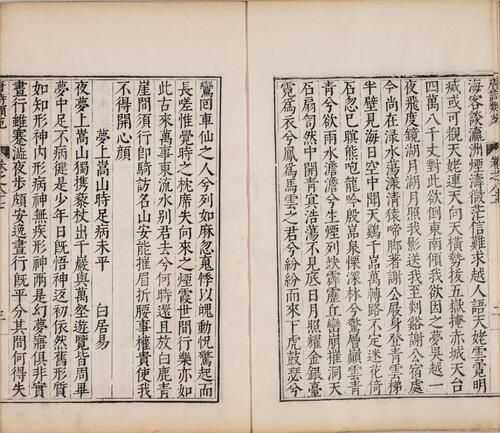 海客談瀛洲煙濤微茫信難求越人語天姥雲霓明
滅或可觀天姥連天向天橫勢拔五嶽掩赤城天台
四萬八千丈對此欲倒東南傾我欲因之夢吳越一
夜飛度鏡湖月湖月照我影送我至剡谿謝公宿處
今尚在淥水蕩漾清猿啼脚著謝公屐身登青雲梯
半壁見海日空中聞天鷄千嵒萬轉路不定迷花倚
石忽已暝熊咆龍吟殷嵒泉慄深林兮驚層巔雲青
青兮欲雨水澹澹兮生煙列缺霹靂丘巒崩摧洞天
石扇訇然中開青冥浩蕩不見底日月照耀金銀臺
霓爲衣兮鳳爲馬雲之君兮紛紛而來下虎鼓瑟兮
鸞回車仙之人兮列如麻忽䰟悸以魄動怳驚起而
長嗟惟覺時之枕席失向來之煙霞世間行樂亦如
此古來萬事東流水別君去兮何時還且放白鹿青
崖間須行卽騎訪名山安能摧眉折腰事權貴使我
不得開心顏
夢上嵩山時足病未平 白居易
夜夢上嵩山獨攜藜杖出千巖與萬壑遊覽皆周畢
夢中足不病徤是少年日旣悟神返初依然舊形質
如知形神內形病神無疾形神兩是幻夢寐俱非實
晝行雖蹇澁夜步頗安逸晝行旣平分其間何得失